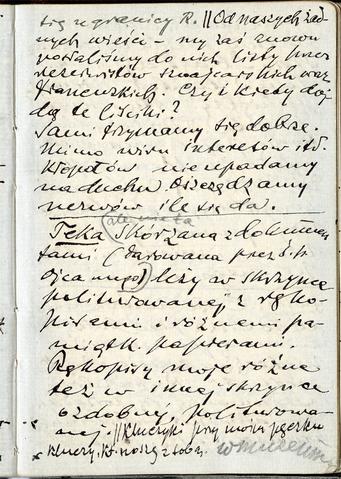 się z granicy R. // Od naszych żad-
nych wieści – my zaś znowu
posłaliśmy do nich listy przez
rezerwistów szwajcarskich oraz
francuskich. Czy i kiedy doj-
dą te liściki?
Sami trzymamy się dobrze.
Mimo wiru interesów itd.
kłopotów nie upadamy
na duchu. Oszczędzamy
nerwów ile się da.
(ale nie ta
Teka skórzana z dokumen-
tami (darowana przez ś.p.
ojca mego) leży w skrzynce
politurowanej z ręko-
pisami i różnemi pa-
miątk. papierami.
Rękopisy moje różne
też w innej skrzynce
ozdobnej, politurowa-
nej. // Kluczyki przy moim pęczku
kluczy, kt. noszę z sobą.